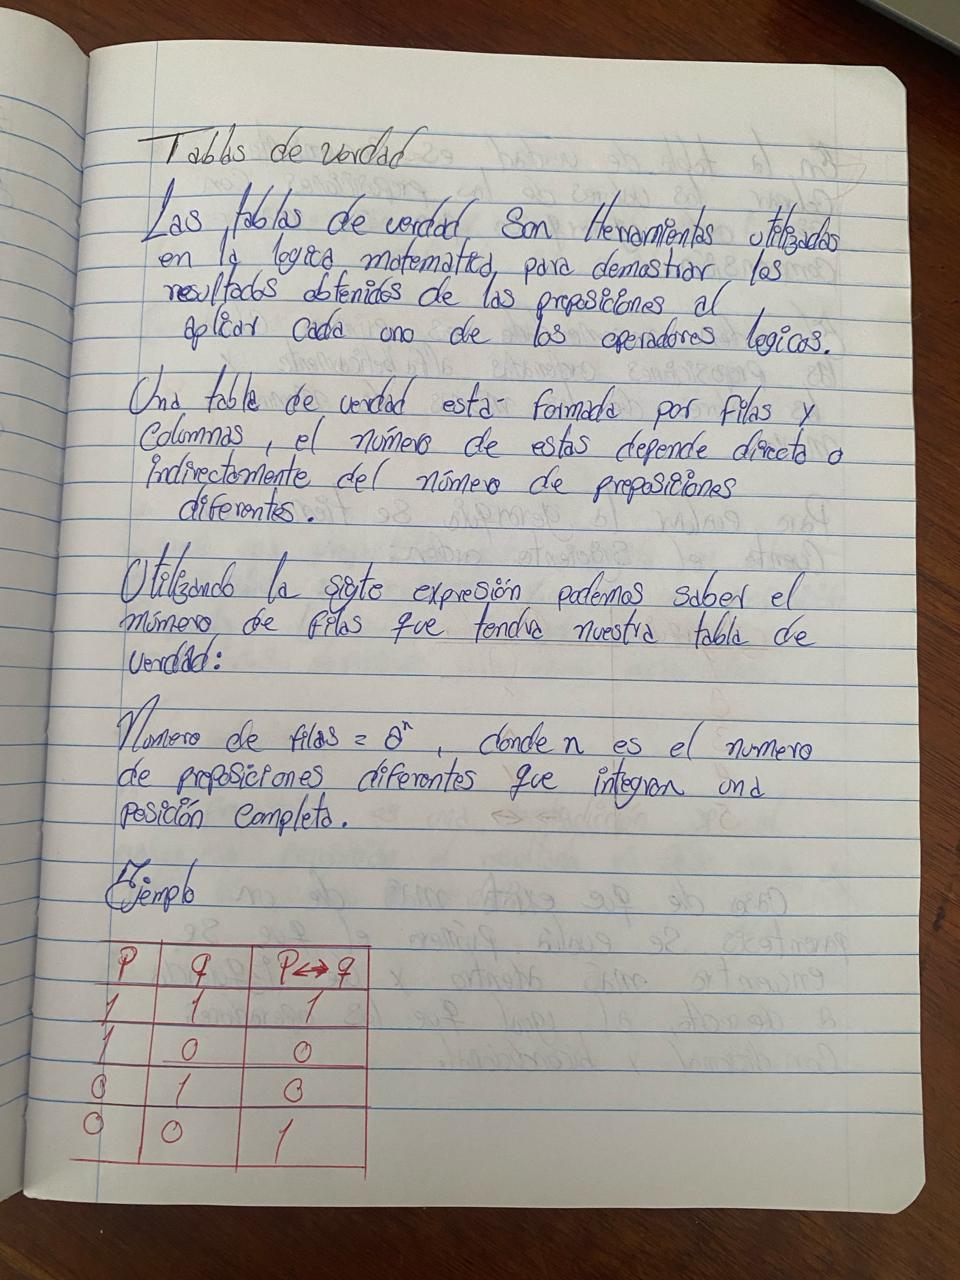 Tablas de verdad
Las tablas de verdad son Herramientas utilizadas
en la logica matematica, para demostrar los
resultados obtenidos de las proposiciones al
aplicar cada uno de los operadores logicos.
Una tabla de verdad esta formada por filas y
Columnas, el número de estas depende directa o
indirectamente del número de proposiciones
diferentes.
Utilizando la sigte expresión podemos saber el
número de filas que tendra nuestra tabla de
verdad:
Numero de filas = 2ⁿ, donde n es el numero
de proposiciones diferentes que integran una
posición completa.
Ejemplo
P q P↔q
1 1 1
1 0 0
0 1 0
0 0 1